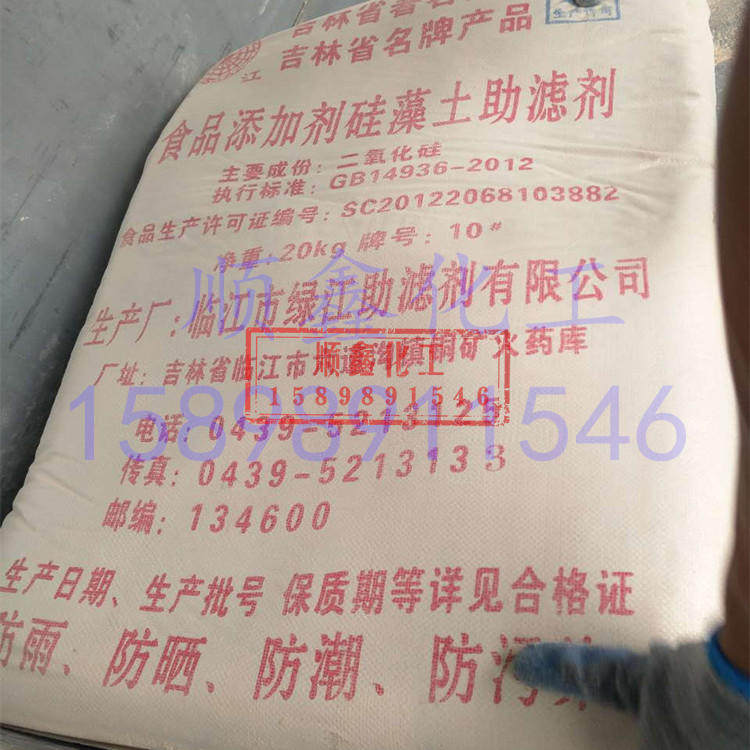 吉林省著名
生产许可
吉林省名牌产品
江
食品添加剂硅藻土助滤剂
主要成份：二氧化硅
执行标准：GB14936-2012
食品生产许可证编号：SC20122068103882
净重：20kg 牌号：10#
顺鑫化工
生产厂：临江市绿江助滤剂有限公司
厂址：吉林省临江市 镇铜矿火药库
顺鑫化工
15898911546
15898911546
电话：0439-5213125
传真：0439-5213133
邮编：134600
生产日期、生产批号 保质期等详见合格证
防雨、防晒、防潮、防污